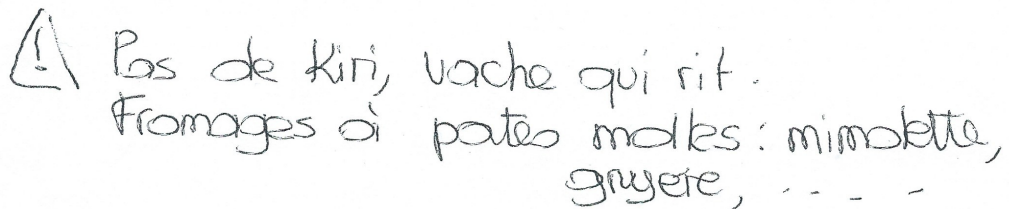 ! Pas de Kiri, vache qui rit.
Fromages à pates molles : mimolette,
gruyere, .. _ _ _